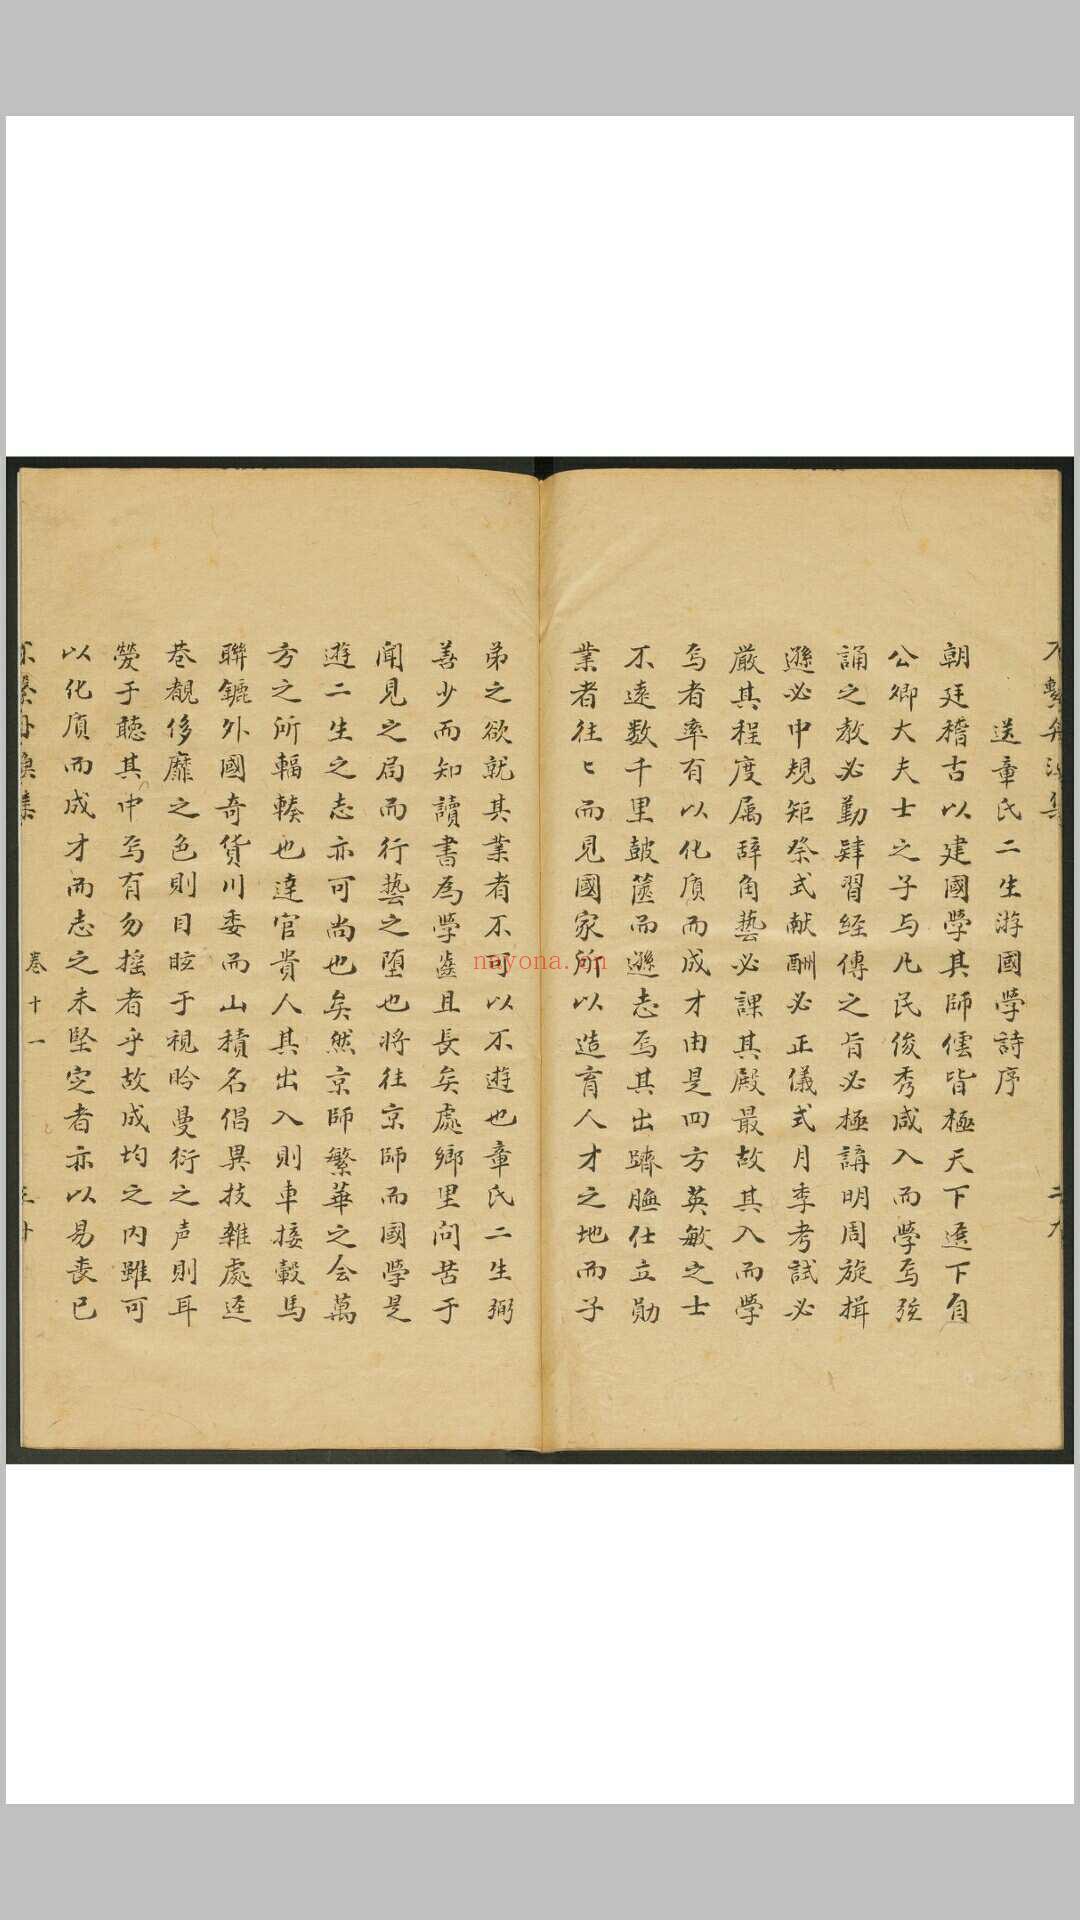 送章氏二生游國學詩序
朝廷稽古以建國學其師儒皆極天下選下自
公卿大夫士之子与凡民俊秀咸入而學焉弦
誦之教必勤肄習經傳之旨必極講明周旋揖
遜必中規矩祭式献酬必正儀式月季考試必
嚴其程度属辞角藝必課其殿最故其入而學
焉者率有以化質而成才由是四方英敏之士
不遠数千里鼓篋而遜志焉其出躋膴仕立勛
業者往〻而見國家所以造育人才之地而子
弟之欲就其業者不可以不遊也章氏二生弼
善少而知讀書為學益且長矣處鄉里問苦于
聞見之局而行藝之堕也將往京師而國學是
遊二生之志亦可尚也矣然京師繁華之会萬
方之所輻輳也達官貴人其出入則車接轂馬
聯鑣外國奇貨川委而山積名倡異技雜處逵
巷覩侈靡之色則目眩于視昤曼衍之声則耳
熒于聽其中焉有勿搖者乎故成均之内雖可
以化質而成才而志之未堅定者亦以易喪已
卷十一
三十
nayona.cn